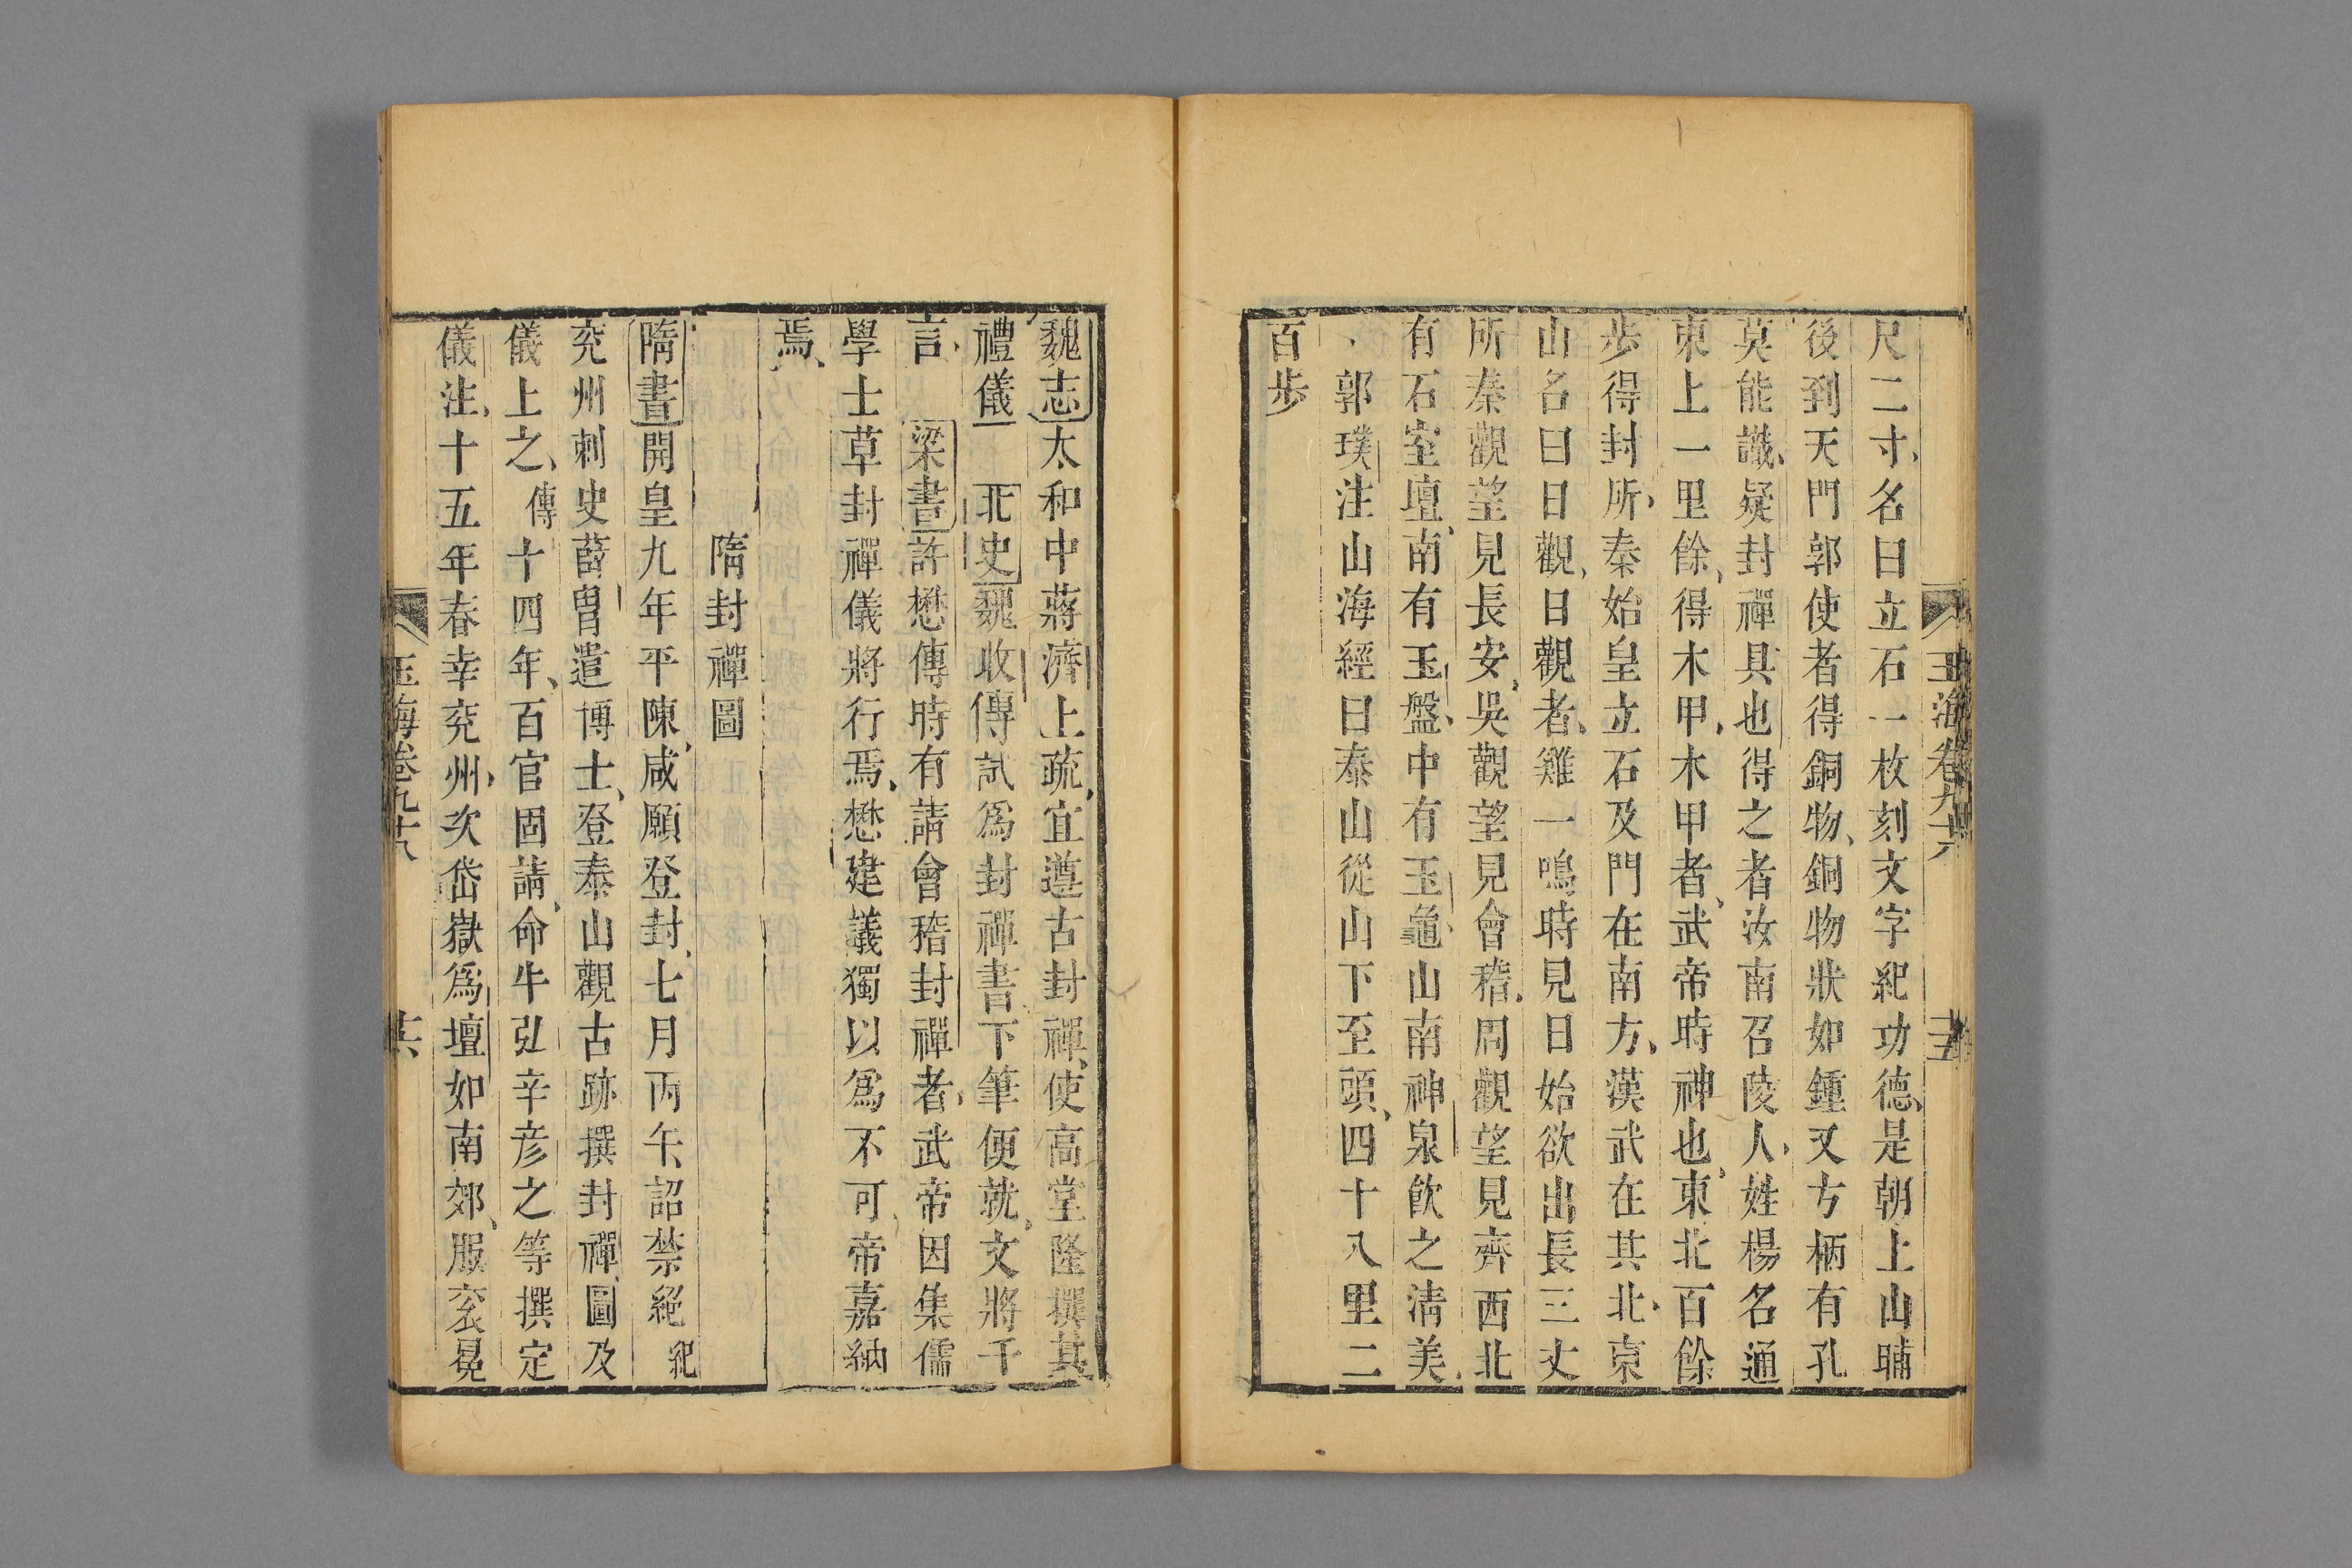 玉海卷九十八
十五
尺二寸、名曰立石一枚刻文字紀功德、是朝上山晡
後到天門郭使者得銅物、銅物狀如鍾又方柄有孔
莫能識、疑封禪具也得之者汝南召陵人、姓楊名通
東上一里餘、得木甲、木甲者、武帝時神也、東北百餘
步得封所、秦始皇立石及門在南方、漢武在其北、東
山名曰日觀、日觀者、雞一鳴時見日始欲出長三丈
所秦觀望見長安、吳觀望見會稽、周觀望見齊西北
有石室壇、南有玉盤、中有玉龜、山南神泉飲之清美、
、郭璞注山海經曰泰山從山下至頭、四十八里二
百步
魏志太和中蔣濟上疏、宜遵古封禪、使高堂隆撰其
禮儀 北史魏收傳試爲封禪書、下筆便就、文將千
言、 梁書許懋傳時有請會稽封禪者、武帝因集儒
學士草封禪儀將行焉、懋建議獨以爲不可、帝嘉納
焉、
隋封禪圖
隋書開皇九年平陳、咸願登封、七月丙午、詔禁絕紀
兖州刺史薛胄遣博士、登泰山觀古跡撰封禪、圖及
儀上之、傳十四年、百官固請、命牛弘辛彥之等撰定
儀注、十五年春幸兖州、次岱嶽爲壇如南郊、服衮冕
玉海卷九十八
十六